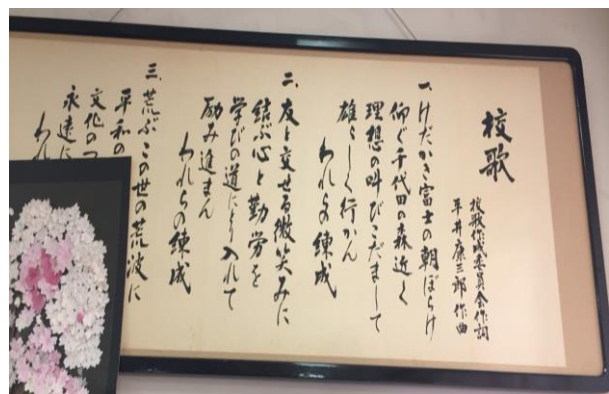 校歌
校歌作成委員会作詞
平井康三郎作曲
一、けだかき富士の朝ぼらけ
仰ぐ千代田の森近く
理想の叫びこだまして
雄々しく行かん
われらの錬成
二、友と交せる微か笑みに
結ぶ心と勤労を
学びの道にとり入れて
励み進まん
われらの錬成
三、荒ぶこの世の荒波に
平和の
文化のつ
永遠に
われ